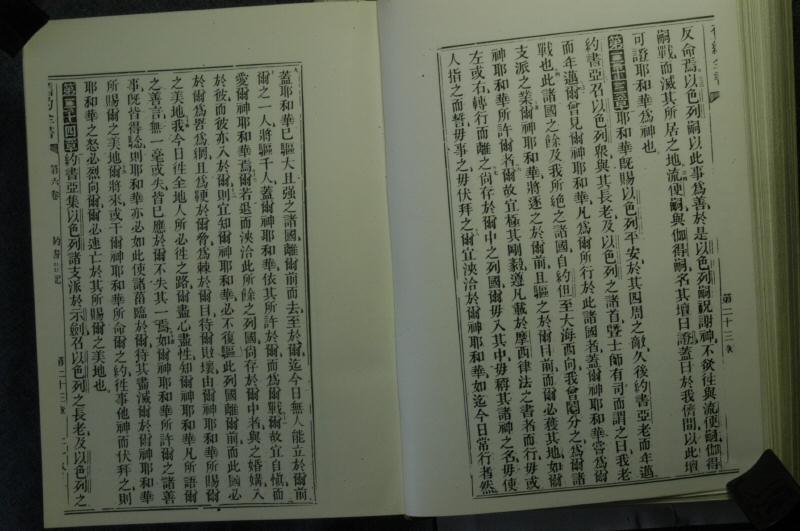 反命焉以色列嗣以此事爲善於是以色列嗣祝謝神不欲徃與流便嗣伽得
嗣戰而滅其所居之地流便嗣與伽得嗣名其壇曰證蓋曰於我儕間以此壇
可證耶和華爲神也
第二十三章耶和華旣賜以色列平安於其四周之敵久後約書亞老而年邁
約書亞召以色列衆與其長老及以色列之諸首暨士師有司而謂之曰我老
而年邁爾曾見爾神耶和華凡爲爾所行於此諸國者蓋爾神耶和華嘗爲爾
戰也此諸國之餘及我所絶之諸國自約但至大海西向我曾鬮分之爲爾諸
支派之業爾神耶和華將逐之於爾前且驅之於爾目前而爾必獲其地如爾
神耶和華所許爾者爾故宜極其剛毅遵凡載於摩西律法之書者而行毋或
左或右轉行而離之尙存於爾中之列國爾毋入其中毋稱其諸神之名毋使
人指之而誓毋事之毋伏拜之爾宜浹洽於爾神耶和華如迄今日常行者然
第二十三章
蓋耶和華已驅大且强之諸國離爾前而去至於爾迄今日無人能立於爾前
爾之一人將驅千人蓋爾神耶和華依其所許於爾而爲爾戰爾故宜自愼而
愛爾神耶和華焉爾若退而浹洽此所餘之列國尙存於爾中者與之婚媾入
於彼而彼亦入於爾則宜知爾神耶和華必不復驅此列國離爾前而此國必
於爾爲罟爲網且爲鞭於爾脅爲棘於爾目待爾敗壞由爾神耶和華所賜爾
之美地我今日徃全地人所必徃之路爾盡心盡性知爾神耶和華凡所語爾
之善言無一毫或失皆已應於爾不失其一焉如爾神耶和華所許爾之諸善
事旣皆得騐則耶和華亦必如此使諸菑臨於爾待其盡滅爾於爾神耶和華
所賜爾之美地爾將來或干爾神耶和華所命爾之約徃事他神而伏拜之則
耶和華之怒必烈向於爾爾必速亡於其所賜爾之美地也
第二十四章約書亞集以色列諸支派於示劍召以色列之長老及以色列之
第六卷
第二十三章